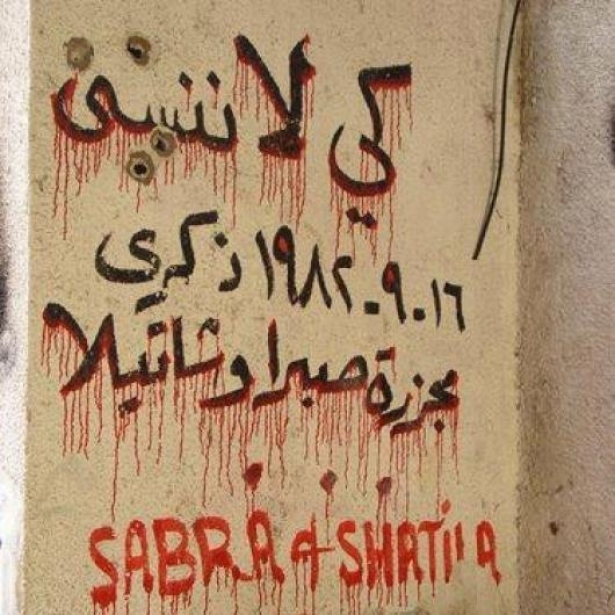 كي لا ننسى
١٦.٩.١٩٨٢ ذكرى
مجزرة صبرا وشاتيلا
SABRA & SHATILA